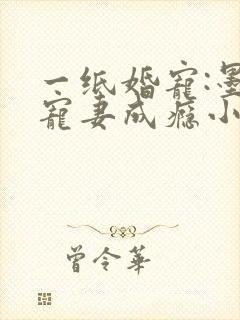 一纸婚宠:墨
宠妻成瘾小
曾令华